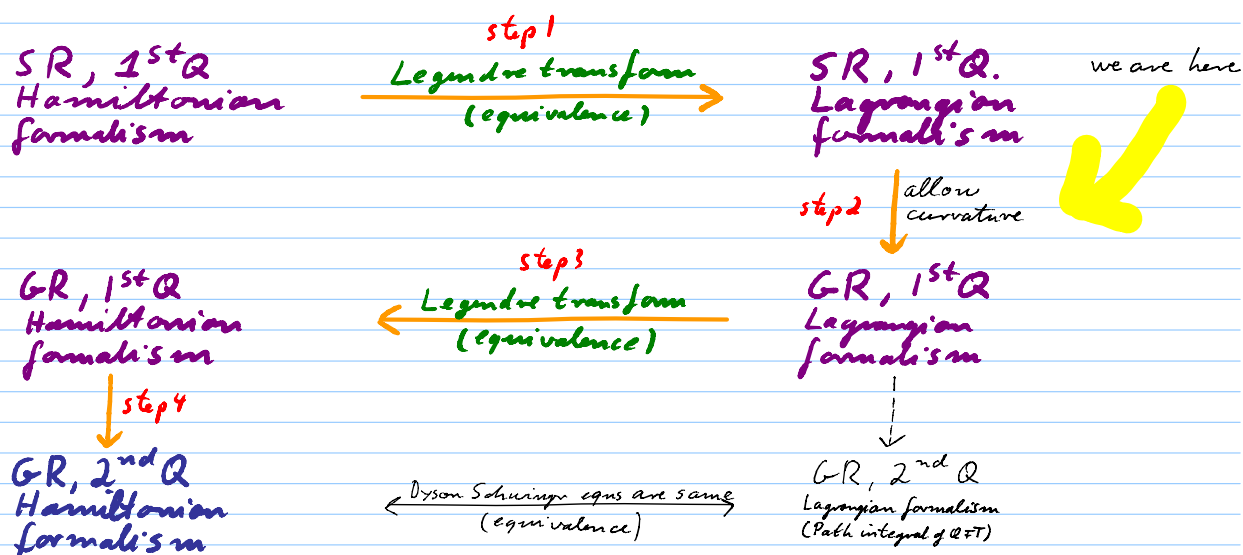 step 1
SR, 1st Q
Hamiltonian
formalism
Legendre transform
(equivalence)
SR, 1st Q.
Lagrangian
formalism
we are here
step 2
allow
curvature
step 3
GR, 1st Q
Hamiltonian
formalism
Legendre transform
(equivalence)
GR, 1st Q
Lagrangian
formalism
step 4
GR, 2nd Q
Hamiltonian
formalism
Dyson Schwinger eqns are same
(equivalence)
GR, 2nd Q
Lagrangian formalism
(Path integral of QFT)